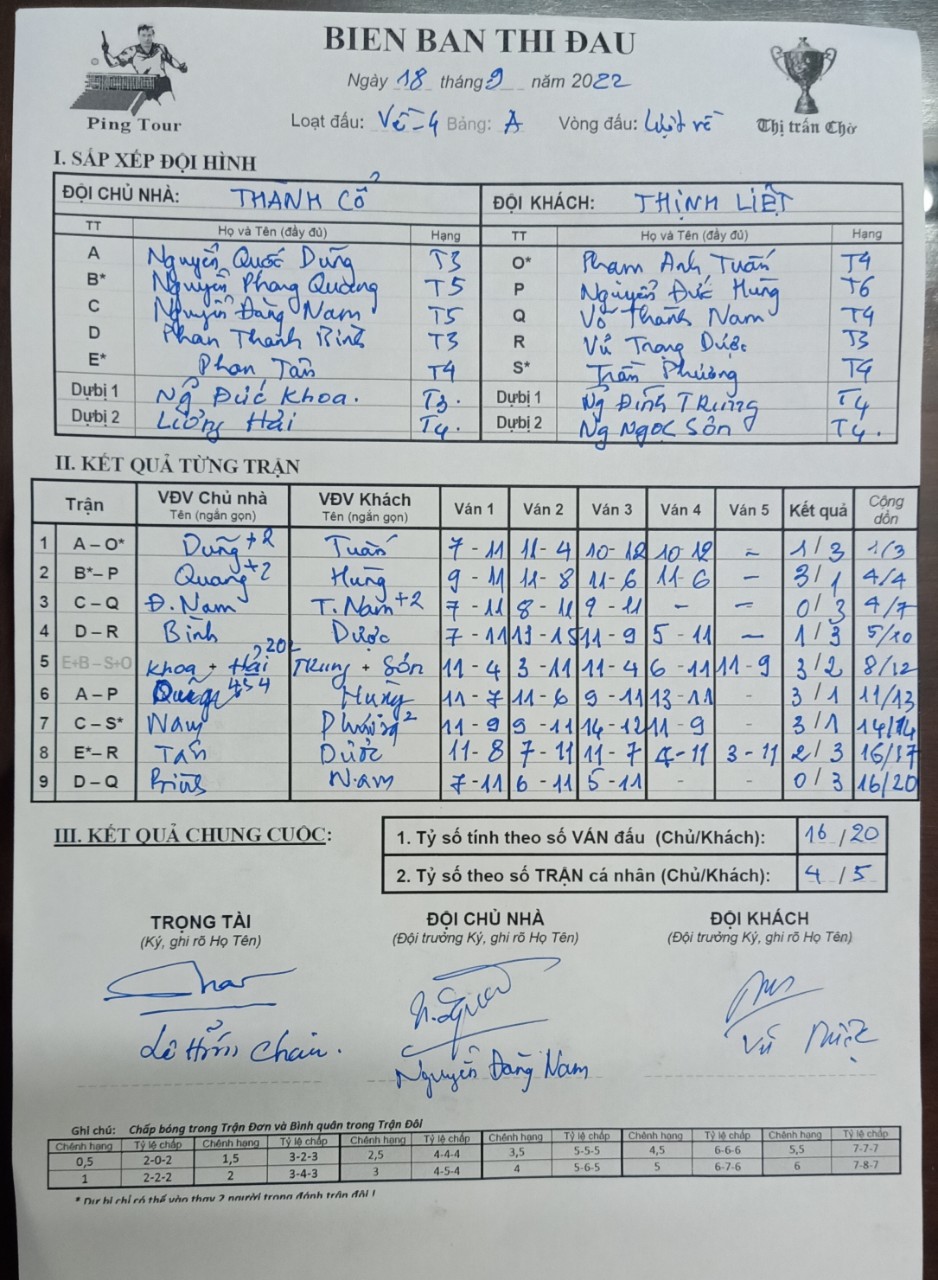 BIEN BAN THI ĐAU
Ngày 18 tháng 9 năm 2022
Ping Tour
Loạt đấu: Về-4 Bảng: A Vòng đấu: Lượt về
Thị trấn Chờ
I. SẮP XẾP ĐỘI HÌNH
ĐỘI CHỦ NHÀ: THÀNH CỔ ĐỘI KHÁCH: THỊNH LIỆT
TT Họ và Tên (đầy đủ) Hạng TT Họ và Tên (đầy đủ) Hạng
A Nguyễn Quốc Dũng T3 O* Phạm Anh Tuấn T4
B* Nguyễn Phong Quang T5 P Nguyễn Đức Hùng T6
C Nguyễn Đăng Nam T5 Q Võ Thành Nam T4
D Phan Thanh Bình T3 R Vũ Trọng Dược T3
E* Phan Tấn T4 S* Trần Phương T4
Dự bị 1 Ng Đức Khoa. T3. Dự bị 1 Ng Đình Trung T4
Dự bị 2 Lương Hải T4. Dự bị 2 Ng Ngọc Sơn T4.
II. KẾT QUẢ TỪNG TRẬN
Trận VĐV Chủ nhà Tên (ngắn gọn) VĐV Khách Tên (ngắn gọn) Ván 1 Ván 2 Ván 3 Ván 4 Ván 5 Kết quả Cộng dồn
1 A – O* Dũng +2 Tuấn 7 - 11 11 - 4 10 - 12 10 - 12 - 1 / 3 1/3
2 B* – P Quang +2 Hùng 9 - 11 11 - 8 11 - 6 11 - 6 - 3 / 1 4/4
3 C – Q Đ. Nam T. Nam +2 7 - 11 8 - 11 9 - 11 - - 0 / 3 4/7
4 D – R Bình Dược 7 - 11 13 - 15 11 - 9 5 - 11 - 1 / 3 5/10
5 E+B – S+O Khoa + Hải 202 Trung + Sơn 11 - 4 3 - 11 11 - 4 6 - 11 11 - 9 3 / 2 8/12
6 A – P 454 Hùng 11 - 7 11 - 6 9 - 11 13 - 11 - 3 / 1 11/13
7 C – S* Nam Phương 2 11 - 9 9 - 11 14 - 12 11 - 9 - 3 / 1 14/14
8 E* – R Tấn Dược 11 - 8 7 - 11 11 - 7 4 - 11 3 - 11 2 / 3 16/17
9 D – Q Bình Nam 7 - 11 6 - 11 5 - 11 - - 0 / 3 16/20
III. KẾT QUẢ CHUNG CUỘC:
1. Tỷ số tính theo số VÁN đấu (Chủ/Khách): 16 / 20
2. Tỷ số theo số TRẬN cá nhân (Chủ/Khách): 4 / 5
TRỌNG TÀI ĐỘI CHỦ NHÀ ĐỘI KHÁCH
(Ký, ghi rõ Họ Tên) (Đội trưởng Ký, ghi rõ Họ Tên) (Đội trưởng Ký, ghi rõ Họ Tên)
Nguyễn Đăng Nam
Ghi chú: Chấp bóng trong Trận Đơn và Bình quân trong Trận Đôi
Chênh hạng Tỷ lệ chấp Chênh hạng Tỷ lệ chấp Chênh hạng Tỷ lệ chấp Chênh hạng Tỷ lệ chấp Chênh hạng Tỷ lệ chấp Chênh hạng Tỷ lệ chấp
0,5 2-0-2 1,5 3-2-3 2,5 4-4-4 3,5 5-5-5 4,5 6-6-6 5,5 7-7-7
1 2-2-2 2 3-4-3 3 4-5-4 4 5-6-5 5 6-7-6 6 7-8-7
* Dự bị chỉ có thể vào thay 2 người trong đánh trận đôi !